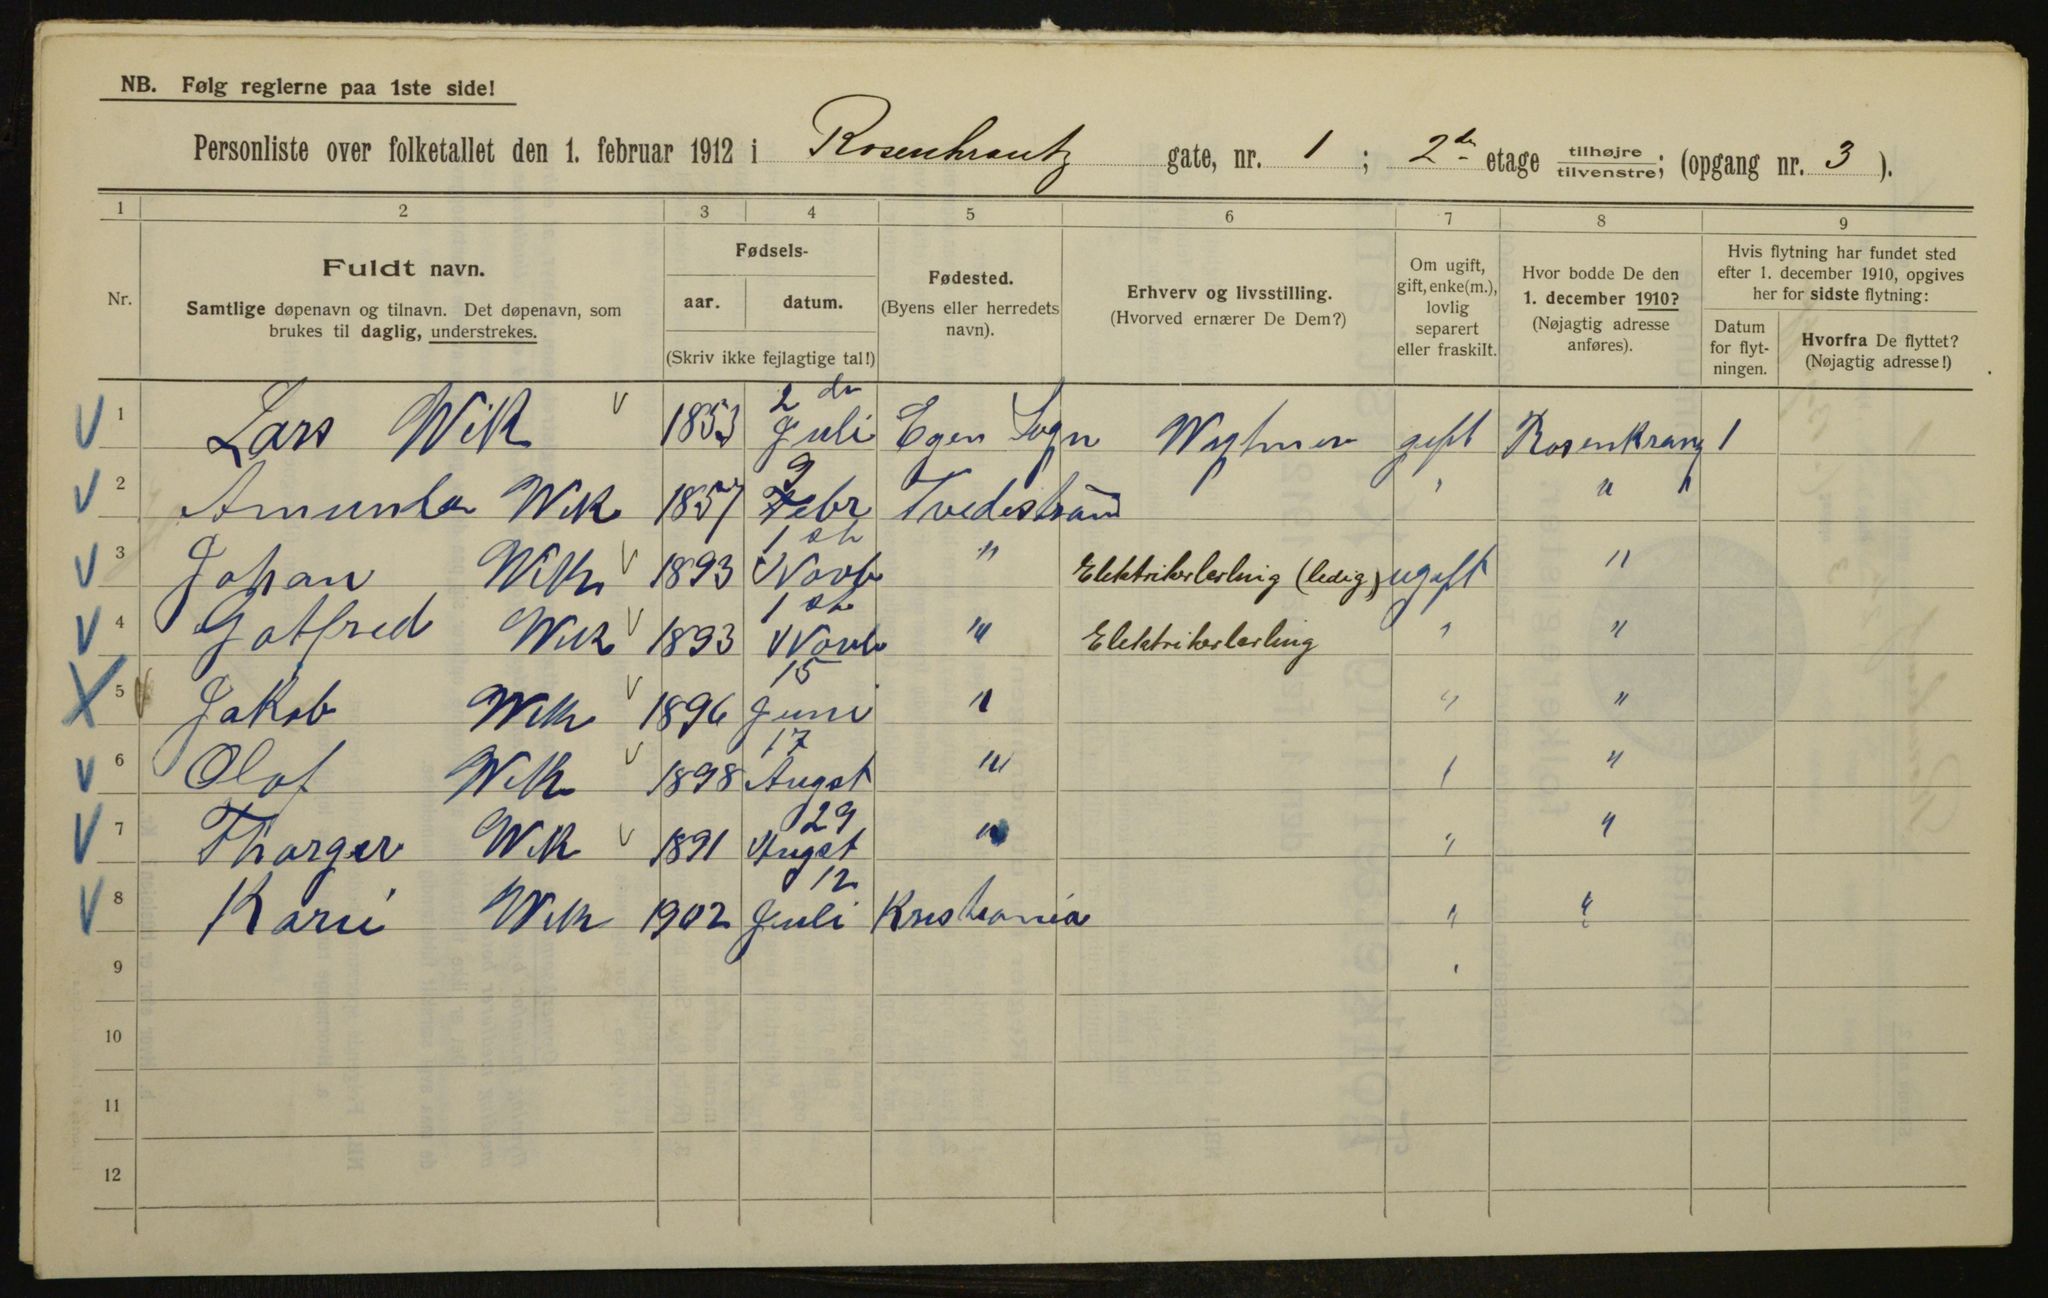 NB. Følg reglerne paa 1ste side!
Personliste over folketallet den 1. februar 1912 i Rosenkrantz gate, nr. 1 ; 2den etage tilhøjre / tilvenstre; (opgang nr. 3 ).
1 2 3 4 5 6 7 8 9
Nr.
Fuldt navn.
Samtlige døpenavn og tilnavn. Det døpenavn, som
brukes til daglig, understrekes.
Fødsels-
aar. datum.
(Skriv ikke fejlagtige tal!)
Fødested.
(Byens eller herredets
navn).
Erhverv og livsstilling.
(Hvorved ernærer De Dem?)
Om ugift,
gift, enke(m.),
lovlig
separert
eller fraskilt.
Hvor bodde De den
1. december 1910?
(Nøjagtig adresse
anføres).
Hvis flytning har fundet sted
efter 1. december 1910, opgives
her for sidste flytning:
Datum
for flyt-
ningen.
Hvorfra De flyttet?
(Nøjagtig adresse!)
1 Lars Wik 1853 2dn Juli Egen Sogn gift Rosenkranz 1
2 Amunda Wik 1857 9 Febr Tvedestrand " " "
3 Johan Wik 1893 1ste Novb " Elektrikerlærling (ledig) ugift "
4 Gotfred Wik 1893 1ste Novb " Elektrikerlærling " "
5 Jakob Wik 1896 15 Juni " " "
6 Olaf Wik 1898 17 Augst " " "
7 Thorger Wik 1891 29 Augst " " "
8 Kari Wik 1902 12 Juli Kristiania " "
9
10
11
12